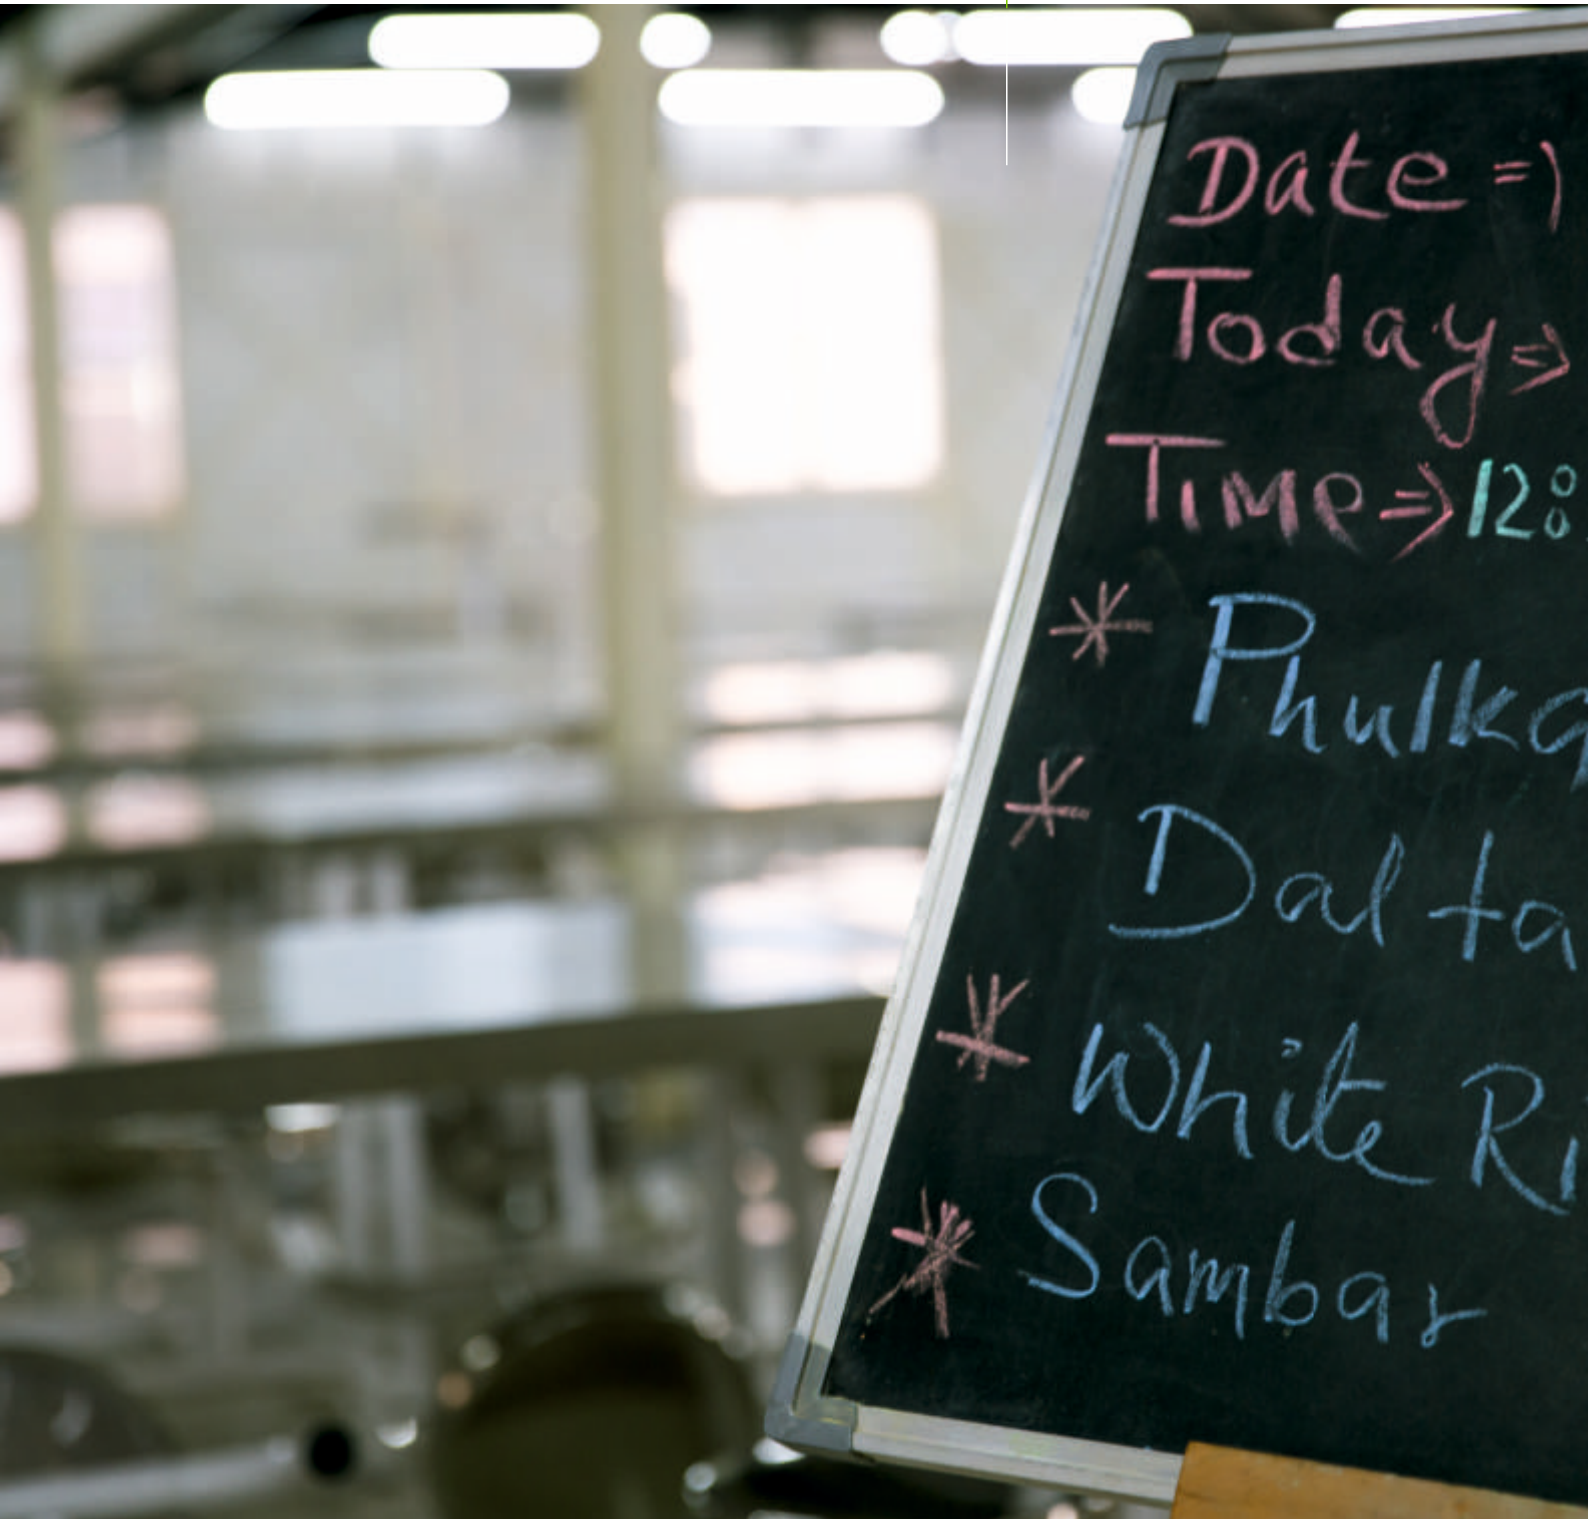 Date =>
Today =>
Time => 12:
* Phulka
* Dal ta
* White Ri
* Sambar